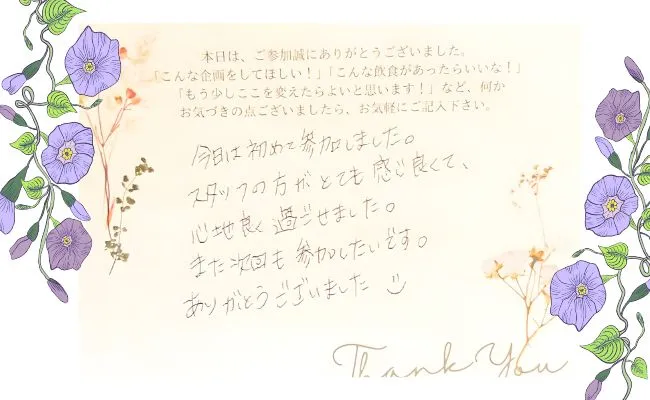 本日は、ご参加誠にありがとうございました。
「こんな企画をしてほしい！」「こんな飲食があったらいいな！」
「もう少しここを変えたらよいと思います！」など、何か
お気づきの点ございましたら、お気軽にご記入下さい。
今日は初めて参加しました。
スタッフの方がとても感じ良くて、
心地良く過ごせました。
また次回も参加したいです。
ありがとうございました
Thank You